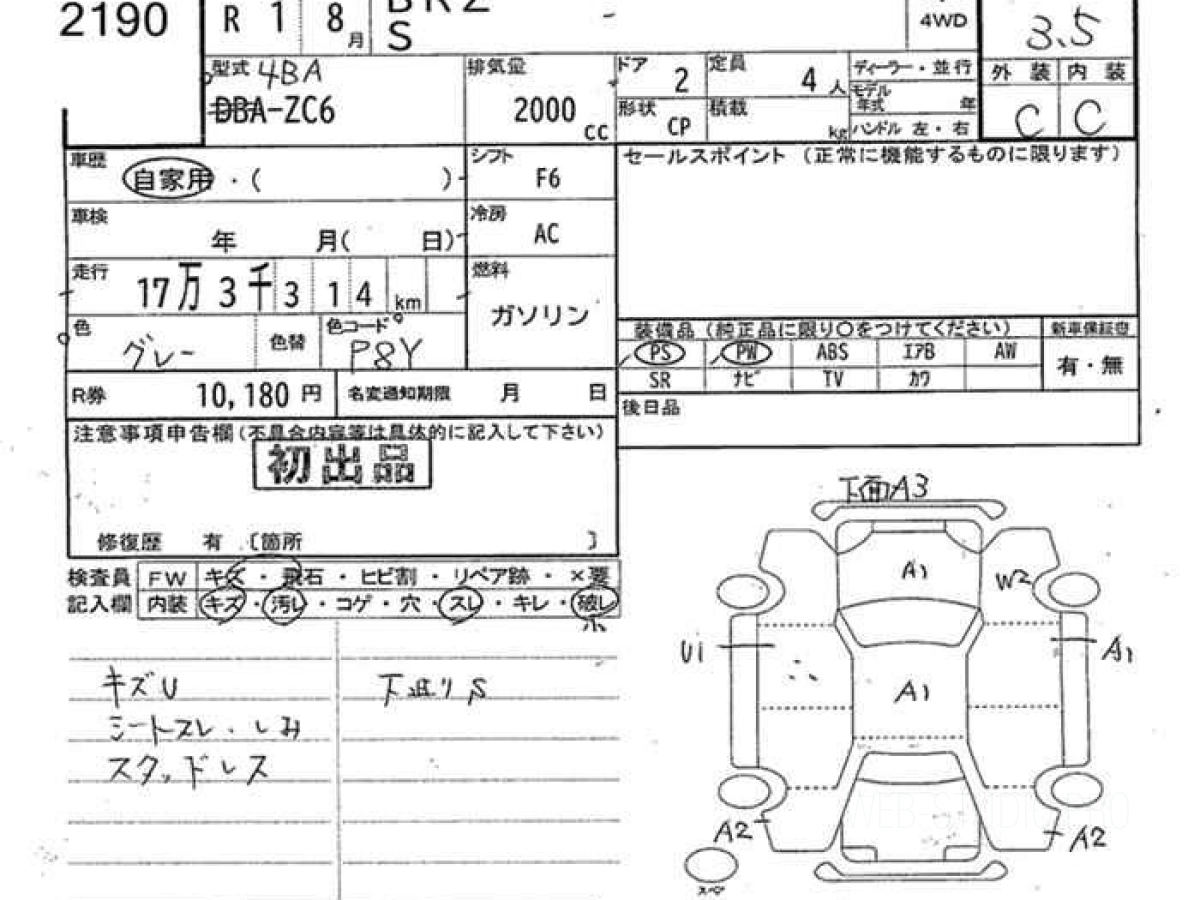 2190
R 1 8月 BRZ
S
4WD
3.5
型式 4BA
DBA-ZC6
排気量
2000 CC
ドア 2
定員 4人
形状 CP
積載 kg
ディーラー・並行
モデル年式 年
ハンドル 左・右
外装 内装
C C
車歴
自家用・( )
シフト
F6
車検
年 月( 日)
冷房
AC
走行
17万3千314km
燃料
ガソリン
色
グレー
色替
色コード
P8Y
R券 10,180円
名変通知期限 月 日
セールスポイント(正常に機能するものに限ります)
装備品(純正品に限り○をつけてください)
PS PW ABS エアB AW
SR ナビ TV カワ
有・無
後日品
注意事項申告欄(不具合内容等は具体的に記入して下さい)
初出品
修復歴 有〔箇所 〕
検査員
記入欄
FW キズ・飛石・ヒビ割・リペア跡・×要
内装 キズ・汚レ・コゲ・穴・スレ・キレ・破レ
キズU
シートスレ・しみ
スタッドレス
下廻りS
下面A3
A1
W2
U1
A1
A1
A2
A2
スペア